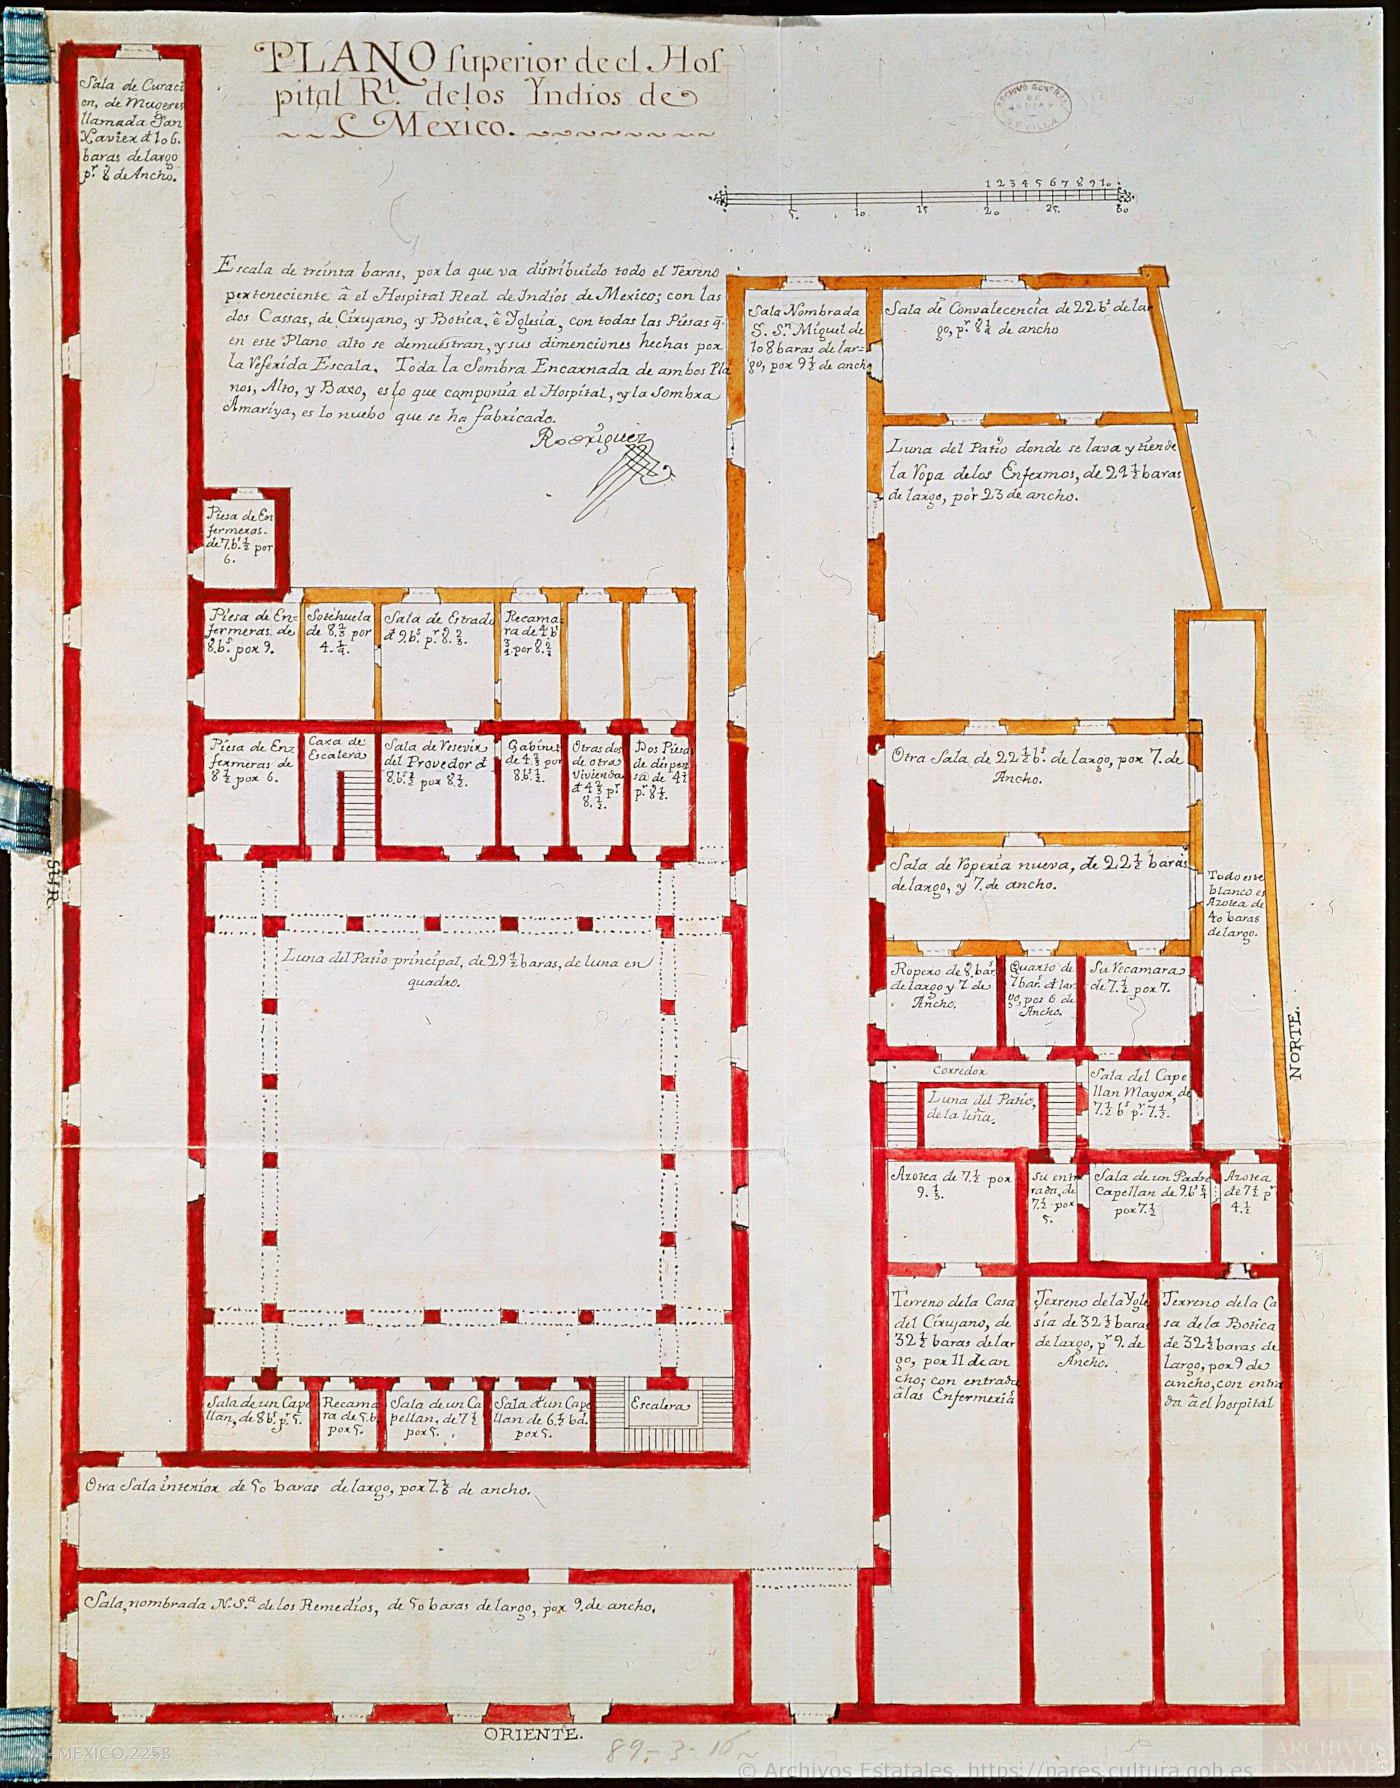 PLANO superior de el Hos
pital Rl. de los Yndios de
Mexico.
ARCHIVO GENERAL
DE
INDIAS
SEVILLA
1 2 3 4 5 6 7 8 9 10
5. 10. 15 20 25. 30
Escala de treinta baras, por la que va distribuido todo el Terreno
perteneciente â el Hospital Real de Indios de Mexico; con las
dos Cassas, de Cirujano, y Botica, ê Yglesia, con todas las Piesas q.
en este Plano alto se demuestran, y sus dimenciones hechas por
la Referida Escala. Toda la Sombra Encarnada de ambos Pla
nos, Alto, y Baxo, es lo que componia el Hospital, y la Sombra
Amariya, es lo nuebo que se ha fabricado.
Rodriguez
Sala de Curaci
on, de Mugeres
llamada San
Xavier d 106.
baras de largo
pr. 8 de Ancho.
Piesa de En
fermeras.
de 7.bs. 1/2 por
6.
Piesa de En=
fermeras, de
8.bs. por 9.
Sotehuela
de 8. 2/3 por
4. 1/4.
Sala de Estrado
d 9.bs. pr. 8. 2/3.
Recama
ra de 4.bs
3/4 por 8. 2/3
Piesa de En=
fermeras de
8 1/2 por 6.
Caxa de
Escalera
Sala de Resevir
del Provedor d
8.bs. 1/2 por 8 1/2.
Gabinet
de 4. 2/3 por
8.bs. 1/2.
Otras dos
de otra
Vivienda
d 4 2/3 pr.
8. 1/2.
Dos Piesas
de dispen
sa de 4 1/2
pr. 8 1/2.
Luna del Patio principal, de 29 1/2 baras, de luna en
quadro.
Sala de un Cape
llan, de 8 bs. pr. 5.
Recama
ra de 5.b
por 5.
Sala de un Ca
pellan, de 7 1/2
por 5.
Sala d un Cape
llan de 6. 1/2 ba.
por 5.
Escalera
Otra Sala interior de 50 baras de largo, por 7. 1/2 de ancho.
Sala, nombrada N. S.ª de los Remedios, de 50 baras de largo, por 9. de ancho.
Sala Nombrada
S. Sn. Miguel de
108 baras de lar=
go, por 9 1/2 de ancho
Sala de Convalecencia de 22 bs. de lar
go, pr. 8 1/2 de ancho
Luna del Patio donde se lava y tiende
la Ropa de los Enfermos, de 29 1/2 baras
de largo, por 23 de ancho.
Otra Sala de 22 1/2 bs. de largo, por 7. de
Ancho.
Sala de Roperia nueva, de 22 1/2 baras
de largo, y 7. de ancho.
Todo este
blanco es
Azotea de
40 baras
de largo.
Ropero de 8, bars.
de largo y 7 de
Ancho.
Quarto de
7 bars. d lar
go, por 6 de
Ancho.
Su Recamara
de 7. 1/2 por 7.
Corredor
Luna del Patio,
de la leña.
Sala del Cape
llan Mayor, de
7. 1/2 bs. pr. 7. 1/2.
Azotea de 7. 1/2 por
9. 1/3.
Su ent
rada, de
7. 1/2 por
5.
Sala de un Padre
Capellan de 9.bs.
por 7. 1/2
Azotea
de 7 1/2 pr.
4. 1/2
Terreno de la Casa
del Cirujano, de
32 1/2 baras de lar
go, por 11 de an
cho; con entrada
â las Enfermerias
Terreno de la Ygle
sia de 32 1/2 baras
de largo, pr. 9. de
Ancho.
Terreno de la Ca
sa de la Botica
de 32 1/2 baras de
largo, por 9 de
ancho, con entra
da â el hospital
SUR.
NORTE.
ORIENTE.
89-3-16
MP-MEXICO,225B
© Archivos Estatales, https://pares.cultura.gob.es
ARCHIVOS
ESTATALES